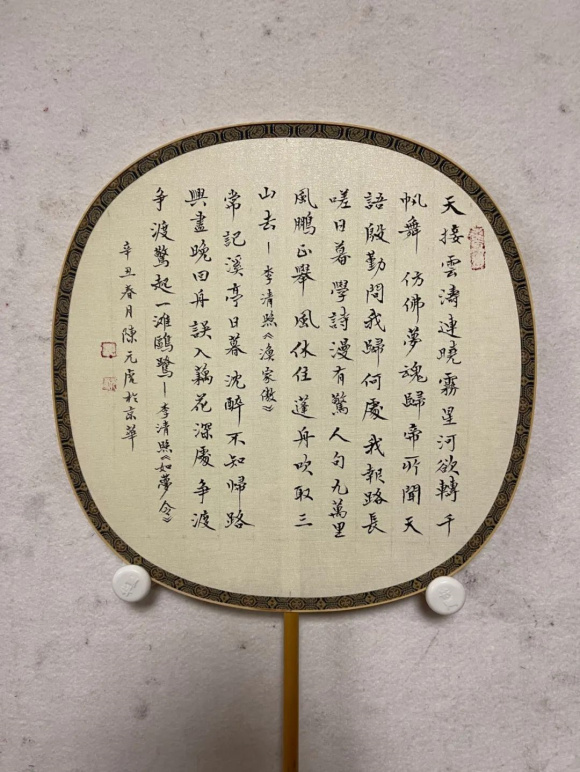 天接雲濤連曉霧星河欲轉千
帆舞 仿佛夢魂歸帝所聞天
語殷勤問我歸何處 我報路長
嗟日暮 學詩漫有驚人句九萬里
風鵬正舉 風休住蓬舟吹取三
山去—李清照《漁家傲》
常記溪亭日暮沈醉不知帰路
興盡晚回舟誤入藕花深處争渡
争渡驚起一滩鷗鷺—李清照《如夢令》
辛丑春月陳元虎於京華